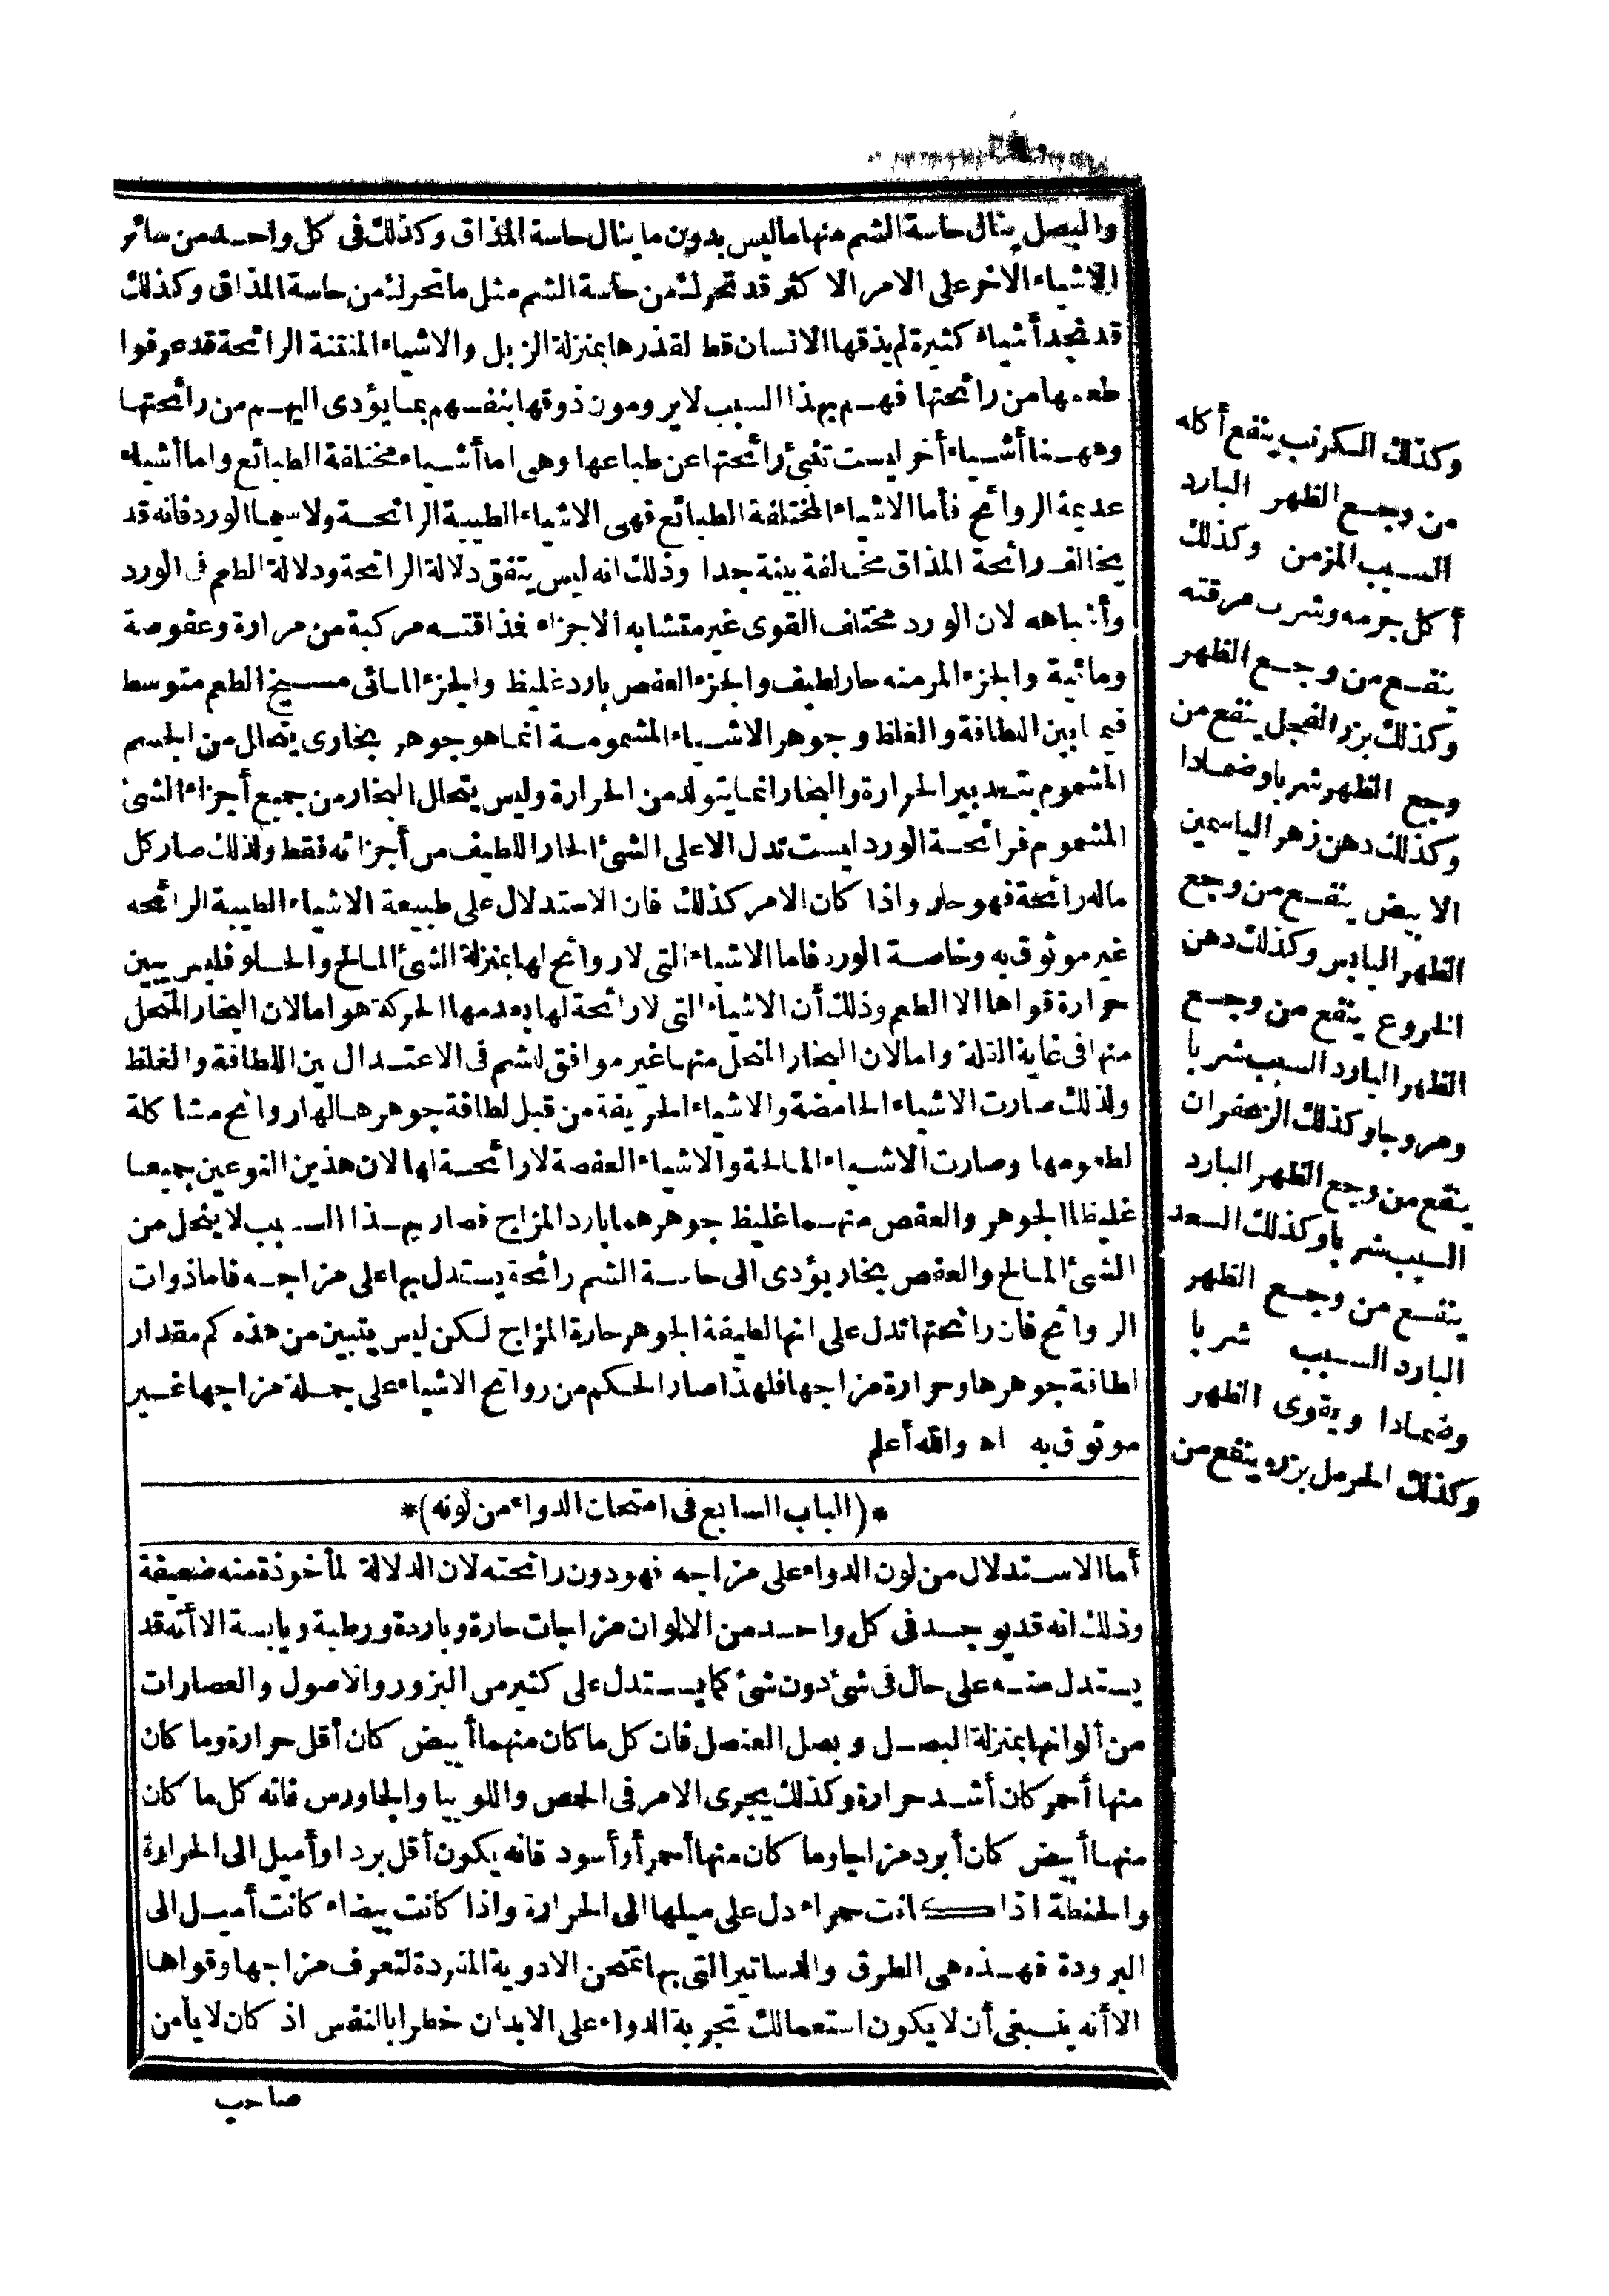 والبصل ينال حاسة الشم منها ما ليس بدون ما ينال حاسة المذاق وكذلك فى كل واحد من سائر
الاشياء الاخر على الامر الاكثر قد تحرك من حاسة الشم مثل ما تحرك من حاسة المذاق وكذلك
قد نجد أشياء كثيرة لم يذقها الانسان قط لقذرها بمنزلة الزبل والاشياء المنتنة الرائحة قد عرفوا
طعمها من رائحتها فهم بهذا السبب لا يرومون ذوقها بنفسهم بما يؤدى اليهم من رائحتها
وههنا أشياء أخر ليست تنبئ رائحتها عن طباعها وهى اما أشياء مختلفة الطبائع واما أشياء
عديمة الروائح فأما الاشياء المختلفة الطبائع فهى الاشياء الطيبة الرائحة ولا سيما الورد فانه قد
يخالف رائحة المذاق مخالفة بينة جدا وذلك انه ليس يتفق دلالة الرائحة ودلالة الطعم فى الورد
وأشباهه لان الورد مختلف القوى غير متشابه الاجزاء فمذاقته مركبة من مرارة وعفوصة
ومائية والجزء المر منه حار لطيف والجزء العفص بارد غليظ والجزء المائى مسيخ الطعم متوسط
فيما بين اللطافة والغلظ وجوهر الاشياء المشمومة انما هو جوهر بخارى يتحلل من الجسم
المشموم بتدبير الحرارة والبخار انما يتولد من الحرارة وليس يتحلل البخار من جميع أجزاء الشئ
المشموم فرائحة الورد ليست تدل الا على الشئ الحار اللطيف من أجزائه فقط ولذلك صار كل
ماله رائحة فهو حار واذا كان الامر كذلك فان الاستدلال على طبيعة الاشياء الطيبة الرائحه
غير موثوق به وخاصة الورد فاما الاشياء التى لا روائح لها بمنزلة الشئ المالح والحلو فليس يبين
حرارة قواها الا الطعم وذلك أن الاشياء التى لا رائحة لها بعدمها الحركة هو اما لان البخار المتحلل
منها فى غاية القلة واما لان البخار المتحلل منها غير موافق للشم فى الاعتدال بين اللطافة والغلظ
ولذلك صارت الاشياء الحامضة والاشياء الحريفة من قبل لطافة جوهرها لها روائح مشاكلة
لطعومها وصارت الاشياء المالحة والاشياء العفصة لا رائحة لها لان هذين النوعين جميعا
غليظا الجوهر والعفص منهما غليظ جوهرهما بارد المزاج فصار بهذا السبب لا ينحل من
الشئ المالح والعفص بخار يؤدى الى حاسة الشم رائحة يستدل بها على مزاجه فاما ذوات
الروائح فان رائحتها تدل على انها لطيفة الجوهر حارة المزاج لكن ليس يتبين من هذه كم مقدار
لطافة جوهرها وحرارة مزاجها فلهذا صار الحكم من روائح الاشياء على جملة مزاجها غير
موثوق به اه والله أعلم
*(الباب السابع فى امتحان الدواء من لونه)*
أما الاستدلال من لون الدواء على مزاجه فهو دون رائحته لان الدلالة المأخوذة منه ضعيفة
وذلك انه قد يوجد فى كل واحد من الالوان مزاجات حارة وباردة ورطبة ويابسة الا أنه قد
يستدل منه على حال فى شئ دون شئ كما يستدل على كثير من البزور والاصول والعصارات
من ألوانها بمنزلة البصل وبصل العنصل فان كل ما كان منهما أبيض كان أقل حرارة وما كان
منها أحمر كان أشد حرارة وكذلك يجرى الامر فى الحمص واللوبيا والجاورس فانه كل ما كان
منها أبيض كان أبرد مزاجا وما كان منها أحمر أو أسود فانه يكون أقل بردا وأميل الى الحرارة
والحنطة اذا كانت حمراء دل على ميلها الى الحرارة واذا كانت بيضاء كانت أميل الى
البرودة فهذه هى الطرق والدساتير التى بها تمتحن الادوية المفردة لتعرف مزاجها وقواها
الا أنه ينبغى أن لا يكون استعمالك تجربة الدواء على الابدان خطرا بالنفس اذ كان لا يأمن
صاحب
وكذلك الكرنب ينفع أكله
من وجع الظهر البارد
السبب المزمن وكذلك
أكل جرمه وشرب مرقته
ينفع من وجع الظهر
وكذلك بزر الفجل ينفع من
وجع الظهر شربا وضمادا
وكذلك دهن زهر الياسمين
الابيض ينفع من وجع
الظهر اليابس وكذلك دهن
الخروع ينفع من وجع
الظهر البارد السبب شربا
ومروخا وكذلك الزعفران
ينفع من وجع الظهر البارد
السبب شربا وكذلك السعد
ينفع من وجع الظهر
البارد السبب شربا
وضمادا ويقوى الظهر
وكذلك الحرمل بزره ينفع من